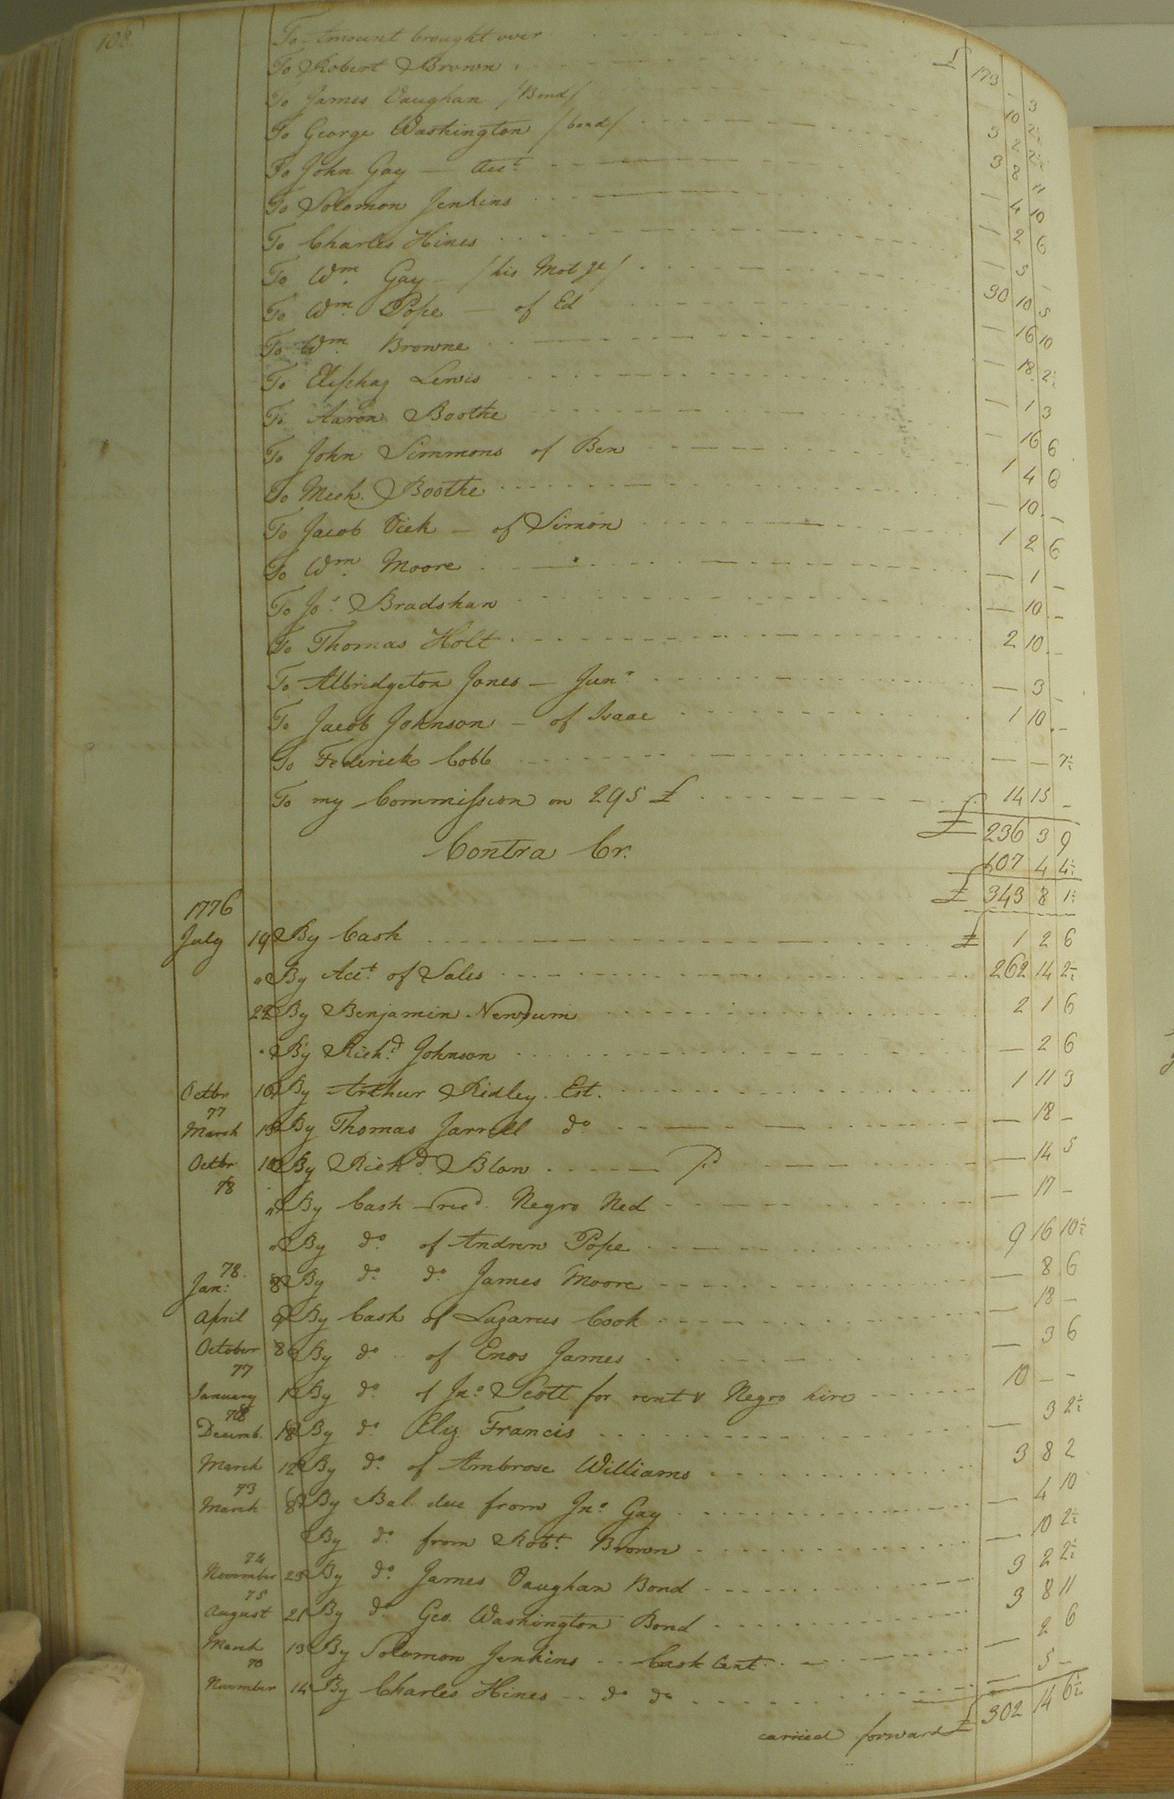 108
To Amount brought over £ 173 - 3
To Robert Brown - 10 2½
To James Vaughan /Bond/ 3 2 2½
To George Washington /bond/ 3 8 11
To John Gay — Acct - 4 10
To Solomon Jenkins - 2 6
To Charles Hines - 5 -
To Wm Gay /his Motge/ 30 10 5
To Wm Pope — of Ed - 16 10
To Wm Browne - 18 2½
To Eliphaz Lewis - 1 3
To Aaron Boothe - 16 6
To John Simmons of Ben 1 4 6
To Mich. Boothe - 10 -
To Jacob Dick — of Simon 1 2 6
To Wm Moore - 1 -
To Jos. Bradshaw - 10 -
To Thomas Holt 2 10 -
To Albridgeton Jones — Junr - 3 -
To Jacob Johnson — of Isaac 1 10 -
To Federick Cobb - - 7½
To my Commission on 295 £ 14 15 -
£ 236 3 9
Contra Cr. 107 4 4½
£ 343 8 1½
1776
July 19 By Cash £ 1 2 6
" By Acct of Sales 262 14 2½
22 By Benjamin Newsum 2 1 6
" By Richd Johnson - 2 6
Octbr 16 By Arthur Ridley Est. 1 11 3
77
March 13 By Thomas Jarrell do - 18 -
Octbr 10 By Richd Blow - 14 5
78
" By Cash recd Negro Ned - 17 -
" By do of Andrew Pope 9 16 10½
78
Jan: 8 By do do James Moore - 8 6
April 9 By Cash of Lazarus Cook - 18 -
October 8 By do of Enos James - 3 6
77
January 12 By do of Jno Scott for rent & Negro hire 10 - -
78
Decemb. 18 By do Eliz Francis - 3 2½
March 12 By do of Ambrose Williams 3 8 2
73
March 8 By Bal due from Jno Gay - 4 10
By do from Robt Brown - 10 2½
74
November 25 By do James Vaughan Bond 3 2 2½
75
August 21 By do Geo. Washington Bond 3 8 11
March 13 By Solomon Jenkins Cash Cent. - 2 6
70
November 14 By Charles Hines do do - 5 -
carried forward £ 302 14 6½